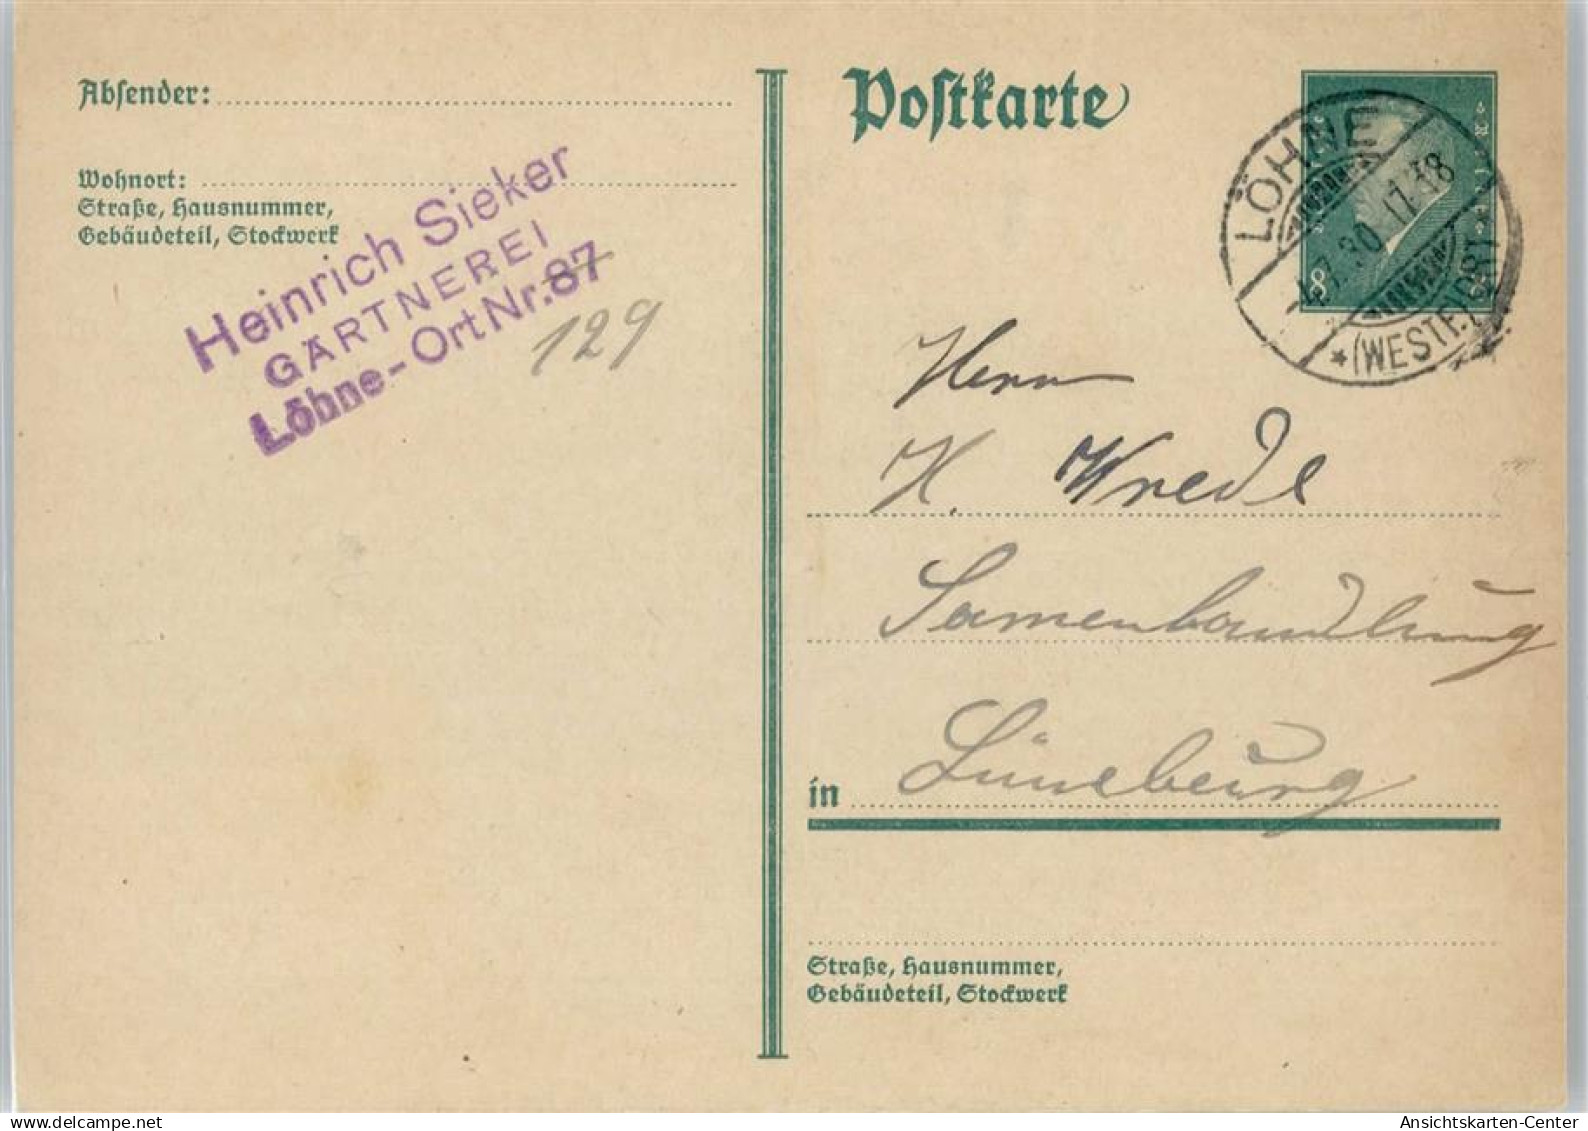 Absender:
Wohnort:
Straße, Hausnummer,
Gebäudeteil, Stockwerk
Heinrich Sieker
GÄRTNEREI
Löhne-Ort Nr. 87
129
Postkarte
LÖHNE
17-18
7.30
(WESTF.) ORT
8
8
Herrn
H. Wrede
Samenhandlung
in Lüneburg
Straße, Hausnummer,
Gebäudeteil, Stockwerk
Ansichtskarten-Center